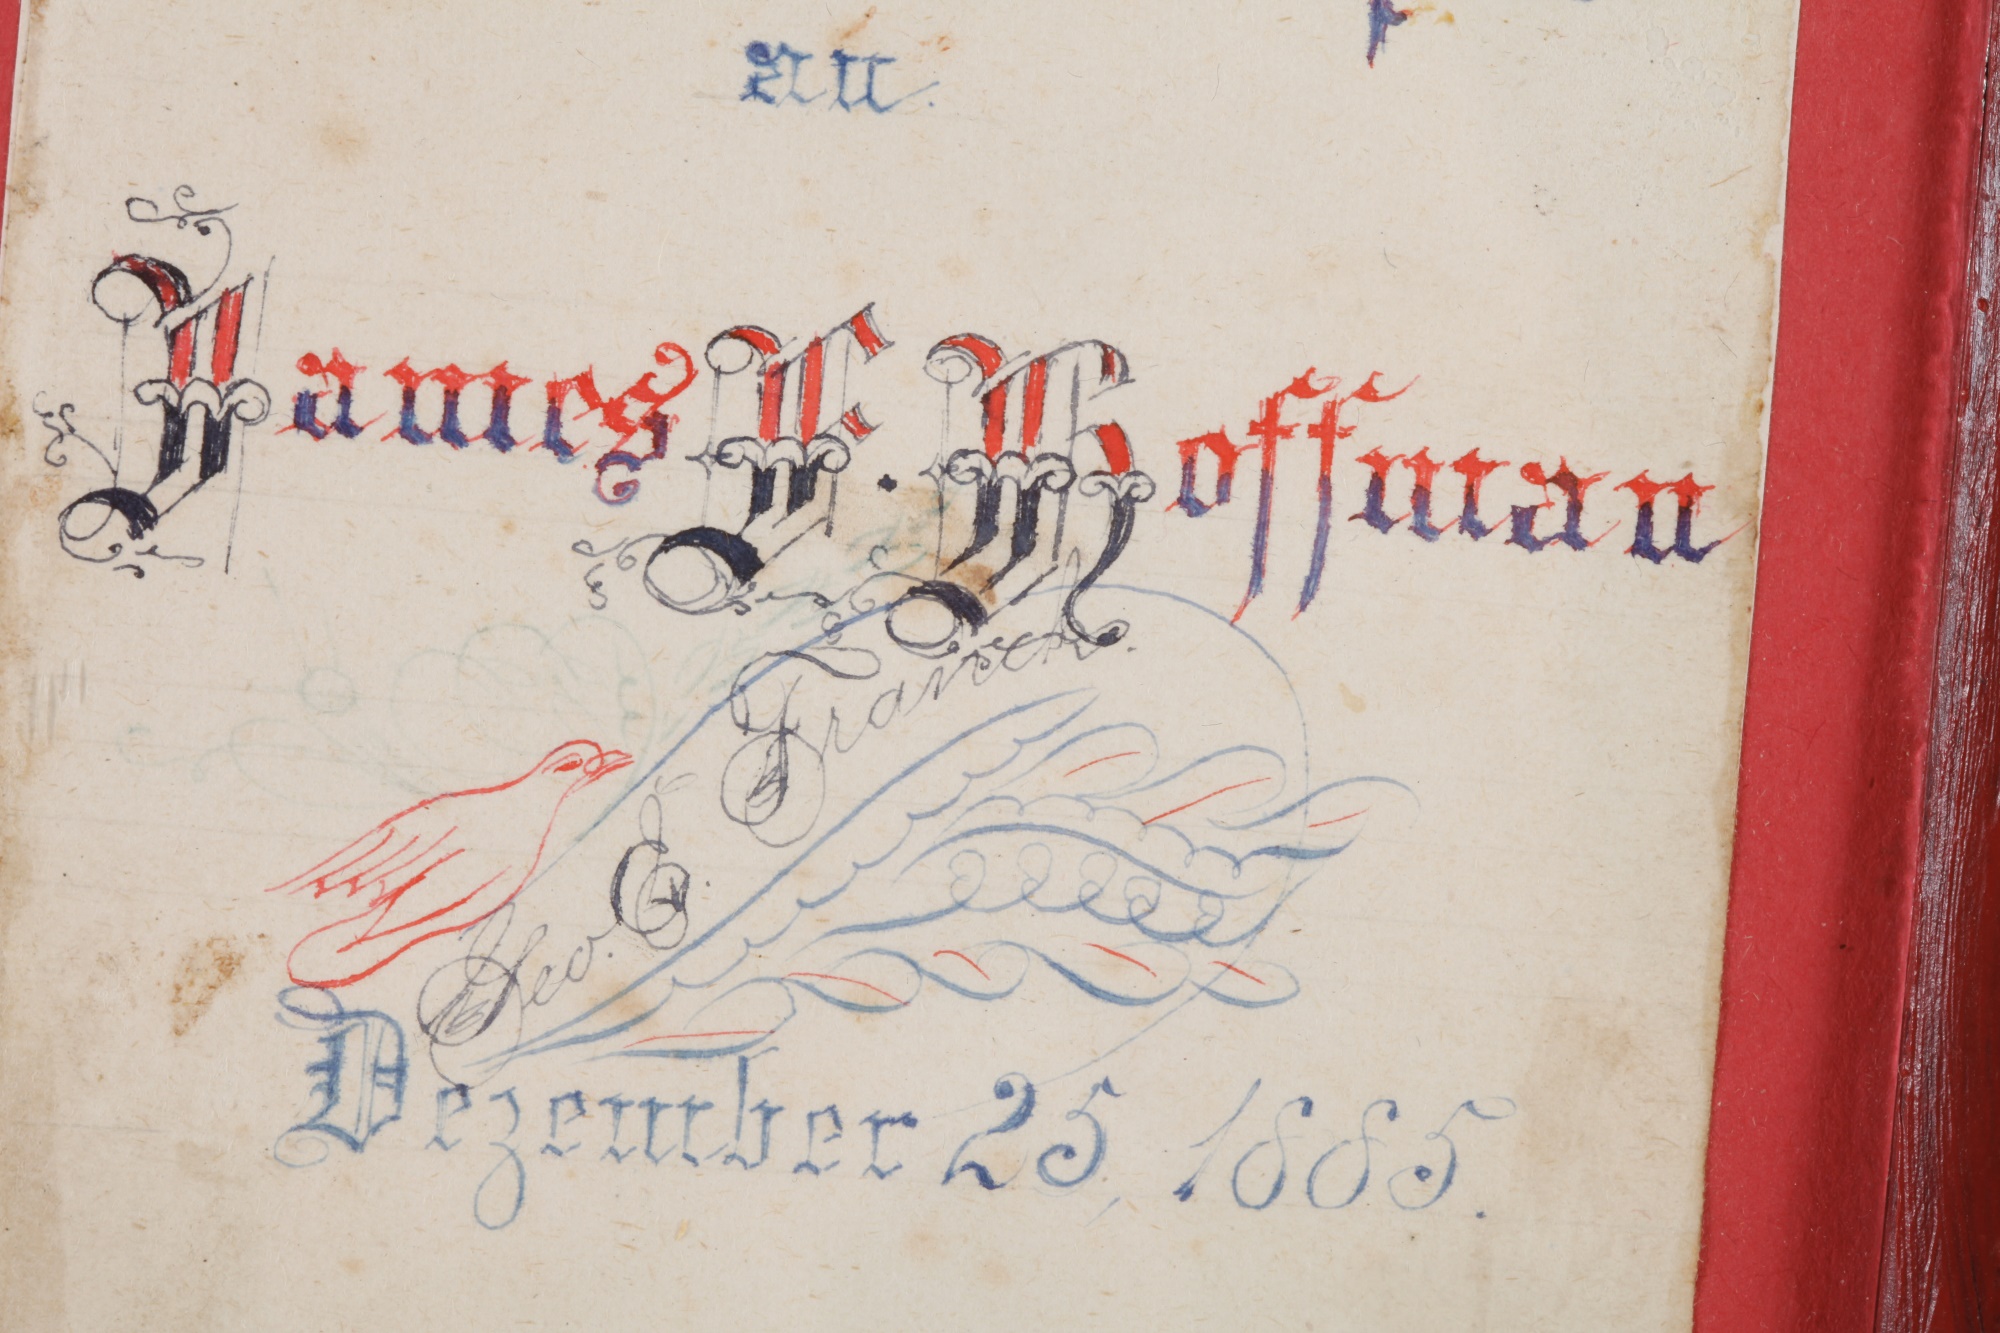 an.
James F. Hoffman
Geo. E.
Dezember 25, 1885.